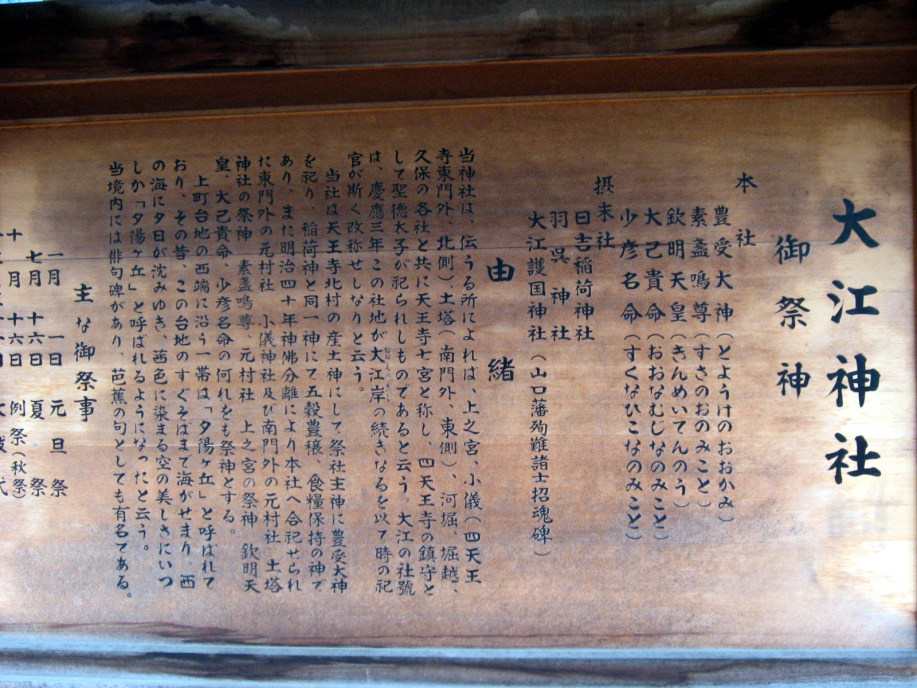 大江神社
御祭神
本社
豊受大神(とようけのおおかみ)
素盞鳴尊(すさのおのみこと)
欽明天皇(きんめいてんのう)
大己貴命(おおなむじなのみこと)
少彦名命(すくなひこなのみこと)
摂末社
日吉稲荷神社
羽呉神社
大江護国神社(山口藩殉難諸士招魂碑)
由緒
当神社は、伝うる所によれば、上之宮、小儀(四天王
寺東門外、北側)土塔(南門外、東側)、河堀、堀越、
久保の各社と共に天王寺七宮と称し、四天王寺の鎮守と
して聖徳太子が祀られしものであると云う。大江の社號
は、慶應三年この社地が大江岸の続きなるを以て時の祀
官が斯く改称せしなりと云う。
当社は天王寺北村の産土神にして祭社主神に豊受大神
を祀り、稲荷神と同一神にて五穀豊穣、食糧保持の神で
あり、また明治四十年神佛分離により本社へ合祀せられ
に東門外の元村社 小儀神社及び南門外の元村社 土塔
神社の祭神 素盞鳴尊、元村社 上之宮の祭神 欽明天
皇、大己貴命、少彦名命の何れをも祭神とする。
上町台地の西端に沿う一帯は「夕陽ヶ丘」と呼ばれて
おり、その昔、この台地のすぐそばまで海がせまり、西
の海に夕日が沈みゆき、茜色に染まる空の美しさにいつ
しか「夕陽ヶ丘」と呼ばれるようになったと云う。
当境内には俳句碑があり、芭蕉の句としても有名である。
主な御祭事
一月 一日 元旦祭
七月 十六日 夏祭
十月 十六日 例祭(秋祭)